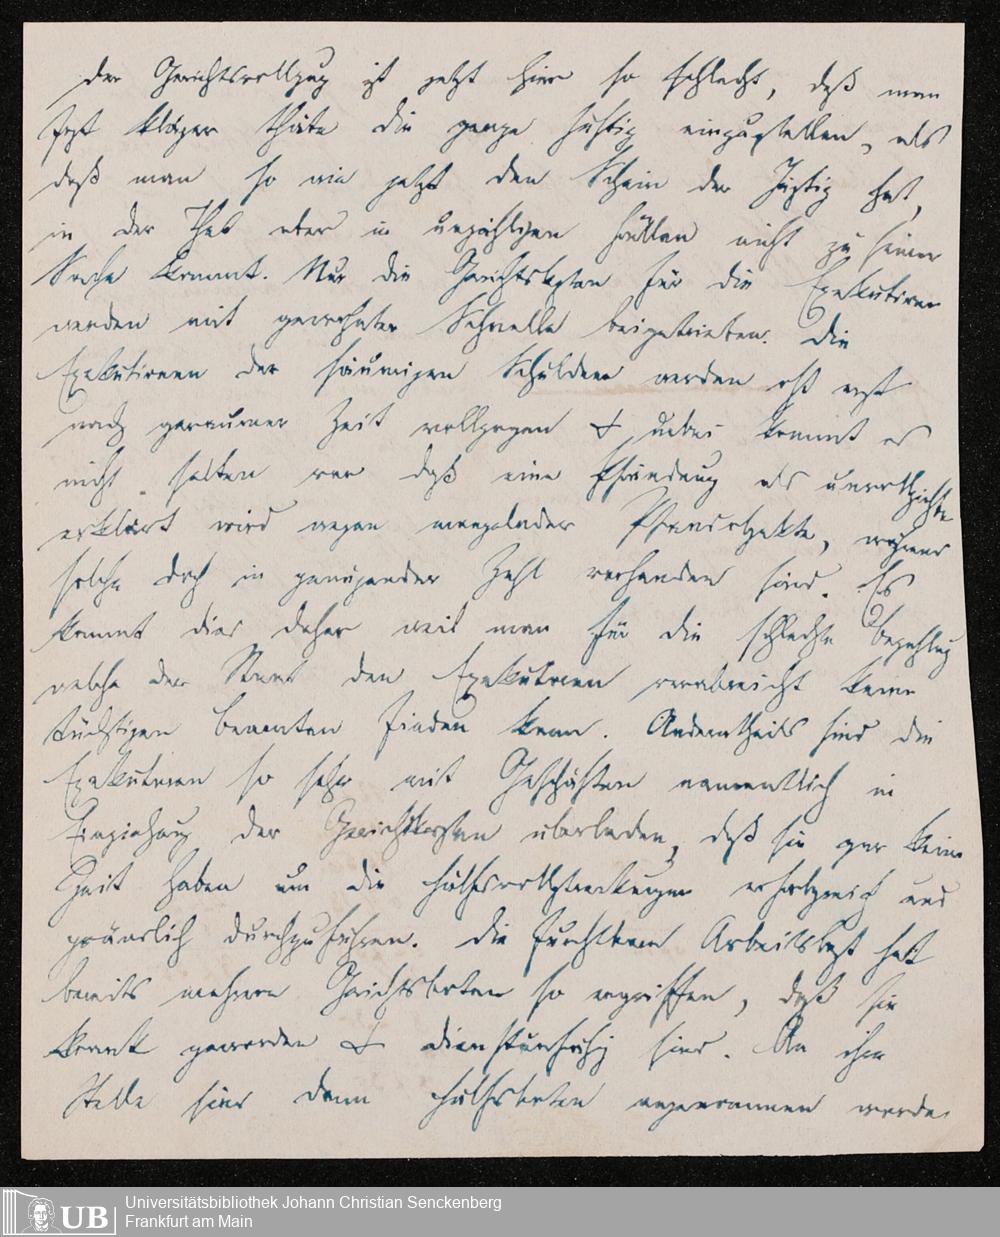 Der Gerichtsvollzug ist jetzt hier so schlecht, daß man
fast klüger thäte die ganze Justiz einzustellen, als
daß man so wie jetzt den Schein der Justiz hat,
in der That aber in unzähligen Fällen nicht zu seiner
Sache kommt. Nur die Gerichtskosten für die Exekutionen
werden mit gewohnter Schnelle beigetrieben. Die
Exekutionen der säumigen Schuldner werden oft erst
nach geraumer Zeit vollzogen & dabei kommt es
nicht selten vor daß eine Pfändung als unvollziehbar
erklärt wird wegen mangelnder Pfandobjekte, während
solche doch in genügender Zahl vorhanden sind. Es
kommt dies daher weil man für die schlechte Bezahlung
welche der Staat den Exekutoren verabreicht keine
tüchtigen Beamten finden kann. Anderntheils sind die
Exekutoren so sehr mit Geschäften namentlich in
Einziehung der Gerichtskosten überladen, daß sie gar keine
Zeit haben um die Hülfsvollstreckungen erfolgreich und
gründlich durchzuführen. Die furchtbare Arbeitslast hat
bereits mehrere Gerichtsboten so ergriffen, daß sie
krank geworden & dienstunfähig sind. An ihre
Stelle sind dann Hülfsboten angenommen worden
Universitätsbibliothek Johann Christian Senckenberg
UB Frankfurt am Main